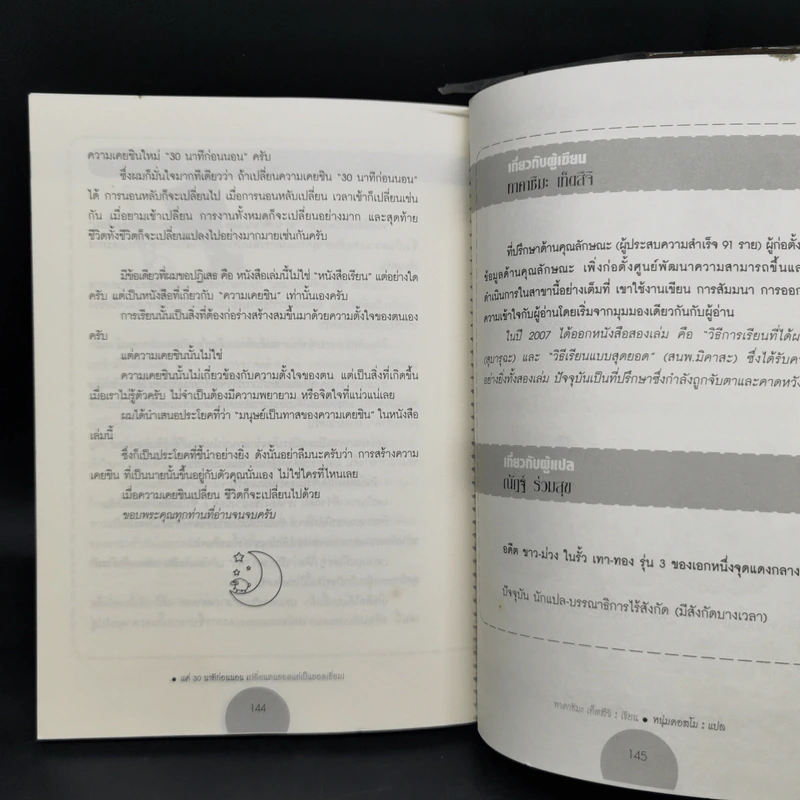 ความเคยชินใหม่ "30 นาทีก่อนนอน" ครับ
ซึ่งผมก็มั่นใจมากทีเดียวว่า ถ้าเปลี่ยนความเคยชิน "30 นาทีก่อนนอน"
ได้ การนอนหลับก็จะเปลี่ยนไป เมื่อการนอนหลับเปลี่ยน เวลาเช้าก็เปลี่ยนเช่น
กัน เมื่อยามเช้าเปลี่ยน การงานทั้งหมดก็จะเปลี่ยนอย่างมาก และสุดท้าย
ชีวิตทั้งชีวิตก็จะเปลี่ยนแปลงไปอย่างมากมายเช่นกันครับ
มีข้อเดียวที่ผมขอปฏิเสธ คือ หนังสือเล่มนี้ไม่ใช่ "หนังสือเรียน" แต่อย่างใด
ครับ แต่เป็นหนังสือที่เกี่ยวกับ "ความเคยชิน" เท่านั้นเองครับ
การเรียนนั้นเป็นสิ่งที่ต้องก่อร่างสร้างสมขึ้นมาด้วยความตั้งใจของตนเอง
ครับ
แต่ความเคยชินนั้นไม่ใช่
ความเคยชินนั้นไม่เกี่ยวข้องกับความตั้งใจของตน แต่เป็นสิ่งที่เกิดขึ้น
เมื่อเราไม่รู้ตัวครับ ไม่จำเป็นต้องมีความพยายาม หรือจิตใจที่แน่วแน่เลย
ผมได้นำเสนอประโยคที่ว่า "มนุษย์เป็นทาสของความเคยชิน" ในหนังสือ
เล่มนี้
ซึ่งก็เป็นประโยคที่ชี้นำอย่างยิ่ง ดังนั้นอย่าลืมนะครับว่า การสร้างความ
เคยชิน ที่เป็นนายนั้นขึ้นอยู่กับตัวคุณนั่นเอง ไม่ใช่ใครที่ไหนเลย
เมื่อความเคยชินเปลี่ยน ชีวิตก็จะเปลี่ยนไปด้วย
ขอบพระคุณทุกท่านที่อ่านจนจบครับ
• แค่ 30 นาทีก่อนนอน
144
เกี่ยวกับผู้เขียน
ทาคาชิมะ เท็ตสึจิ
ที่ปรึกษาด้านคุณลักษณะ (ผู้ประสบความสำเร็จ 91 ราย) ผู้ก่อตั้ง
ข้อมูลด้านคุณลักษณะ เพิ่งก่อตั้งศูนย์พัฒนาความสามารถขึ้นและ
ดำเนินการในสาขานี้อย่างเต็มที่ เขาใช้งานเขียน การสัมมนา การออก
ความเข้าใจกับผู้อ่านโดยเริ่มจากมุมมองเดียวกันกับผู้อ่าน
ในปี 2007 ได้ออกหนังสือสองเล่ม คือ "วิธีการเรียนที่ได้ผ
(สุบารุฉะ) และ "วิธีเรียนแบบสุดยอด" (สนพ.มิคาสะ) ซึ่งได้รับค
อย่างยิ่งทั้งสองเล่ม ปัจจุบันเป็นที่ปรึกษาซึ่งกำลังถูกจับตาและคาดหวัง
เกี่ยวกับผู้แปล
ณัฏฐ์ ร่วมสุข
อดีต ขาว-ม่วง ในรั้ว เทา-ทอง รุ่น 3 ของเอกหนึ่งจุดแดงกลาง
ปัจจุบัน นักแปล-บรรณาธิการไร้สังกัด (มีสังกัดบางเวลา)
ทาคาชิมะ เท็ตสึจิ : เขียน • หนุ่มคอสโม : แปล
145